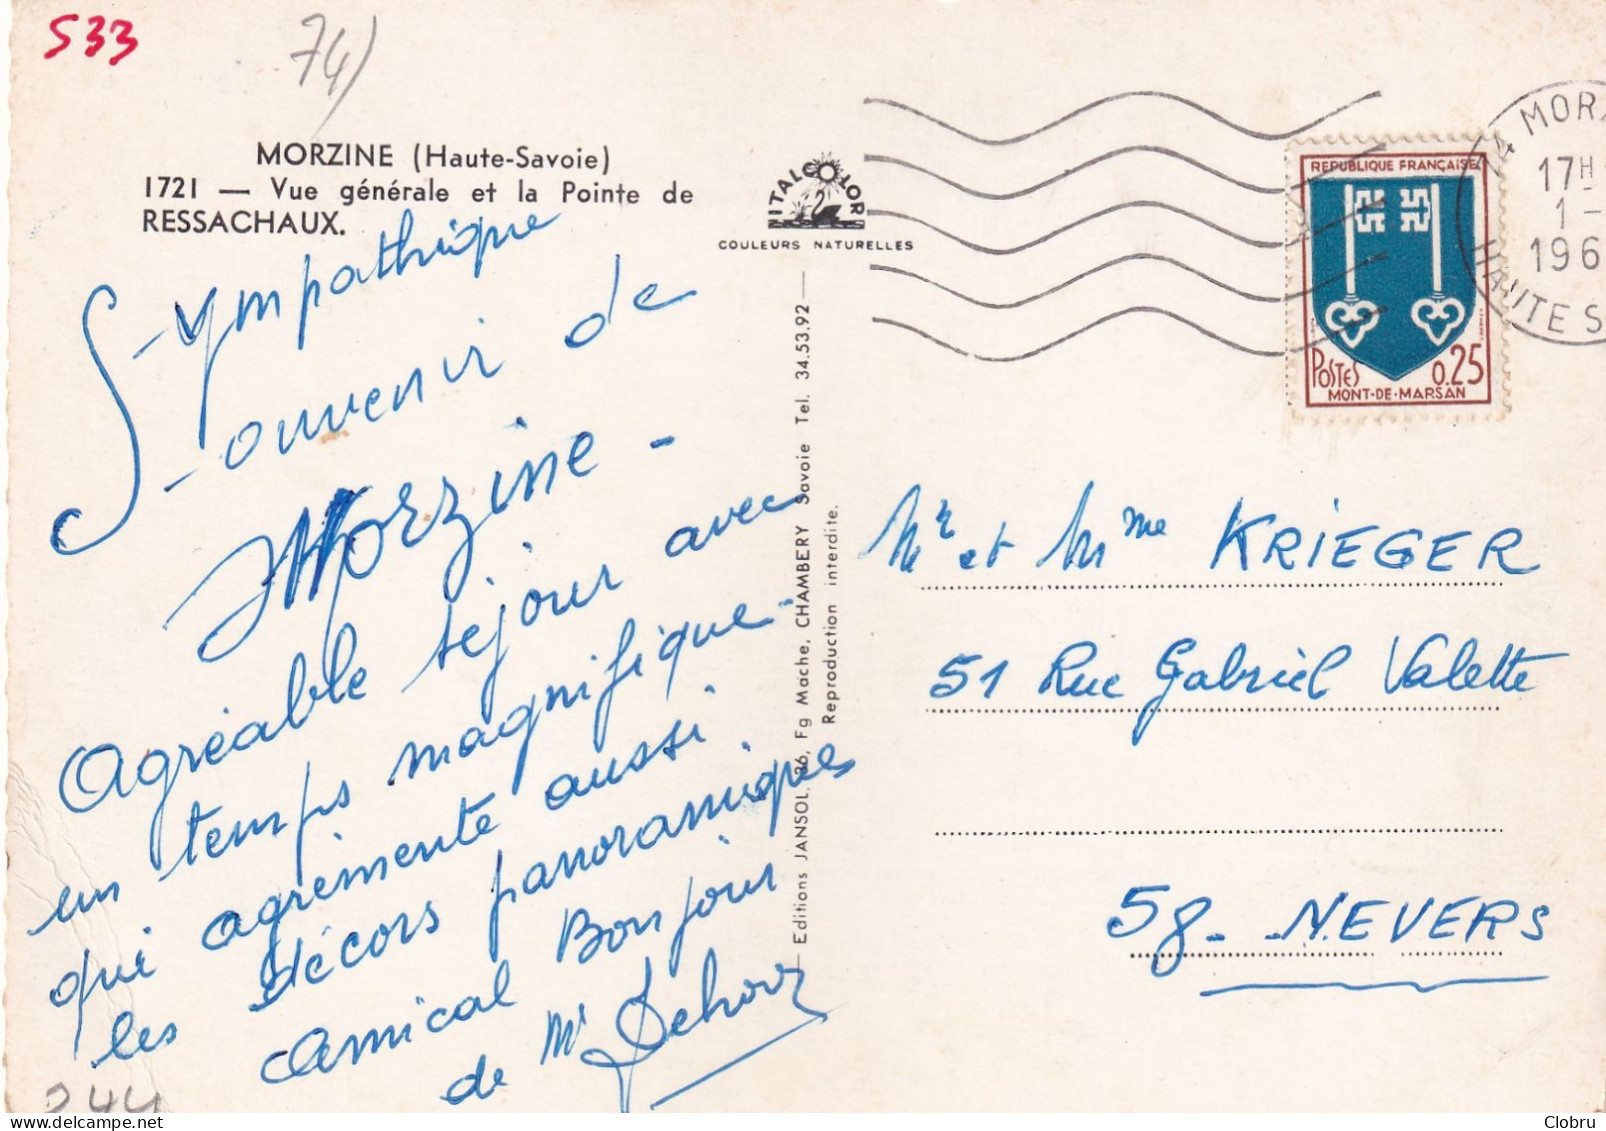 533
74)
MORZINE (Haute-Savoie)
1721 — Vue générale et la Pointe de
RESSACHAUX.
ITALCOLOR
COULEURS NATURELLES
S-ympathique
-ouvenir de
Morzine -
Agréable séjour avec
un temps magnifique -
qui agrémente aussi
les décors panoramiques.
Amical Bonjour
de Mr
Editions JANSOL, 26, Fg Mache, CHAMBERY Savoie Tel. 34.53.92 —
Reproduction interdite.
REPUBLIQUE FRANÇAISE
POSTES 0.25
MONT-DE-MARSAN
74 MORZ
17H
1 -
196
HAUTE S
Mr et Mme KRIEGER
51 Rue Gabriel Valette
58 - NEVERS
244
Clobru